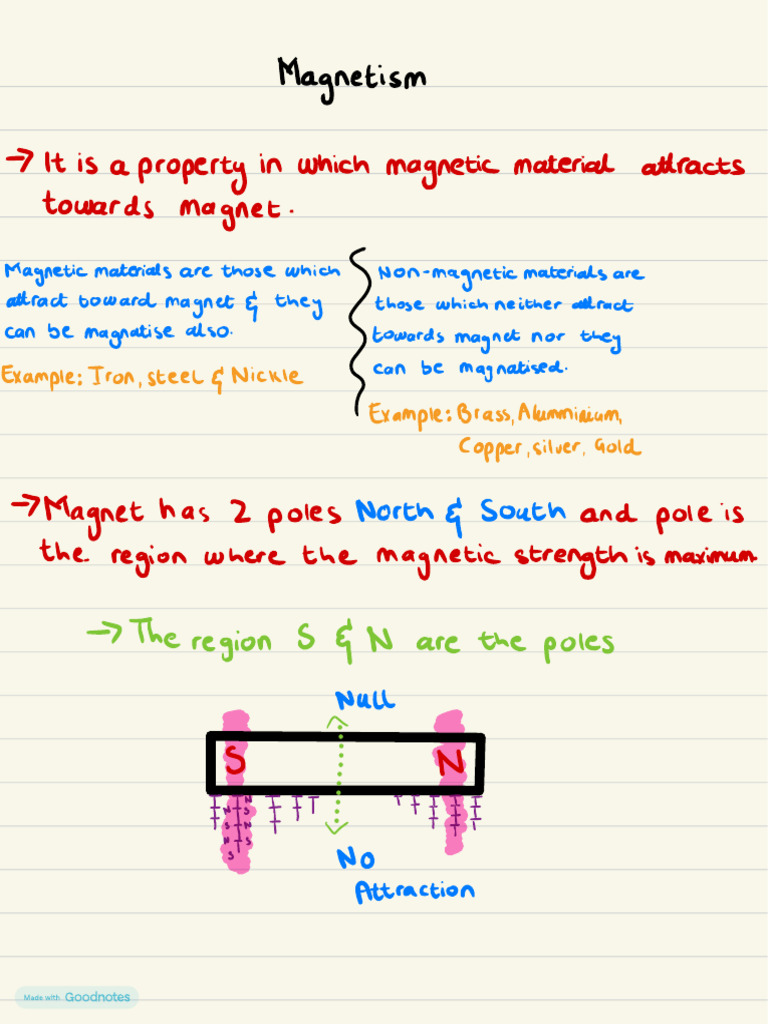 Magnetism
→ It is a property in which magnetic material attracts
towards magnet.
Magnetic materials are those which
attract toward magnet & they
can be magnatise also.
Example: Iron, steel & Nickle
Non-magnetic materials are
those which neither attract
towards magnet nor they
can be magnatised.
Example: Brass, Alumminium,
Copper, silver, Gold
→ Magnet has 2 poles North & South and pole is
the region where the magnetic strength is maximum
→ The region S & N are the poles
Null
S N
No
Attraction
Made with Goodnotes